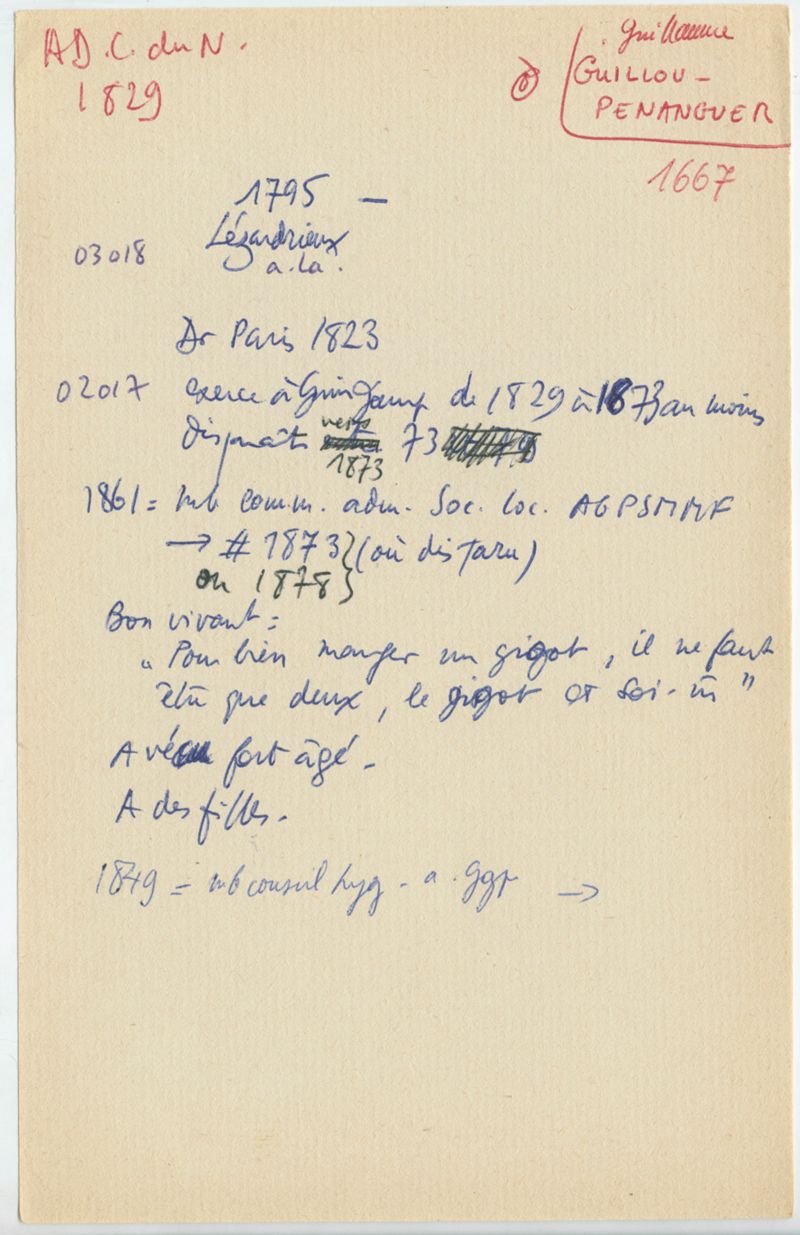 AD. C. du N.
1829
Guillaume
GUILLOU-
PENANGUER
1667
1795 —
Lézardrieux
03018
a. la.
Dr Paris 1823
02017 exerce à Guingamp de 1829 à 1873 au moins
disparaît vers 73
1873
1861 = mb comm. adm. Soc. loc. AGPSMMF
→ # 1873 } (où disparu)
ou 1878 }
Bon vivant =
"Pour bien manger un gigot, il ne faut
être que deux, le gigot et soi-m̂"
A vécu fort âgé.
A des filles.
1849 = mb conseil hyg. a. Ggp →